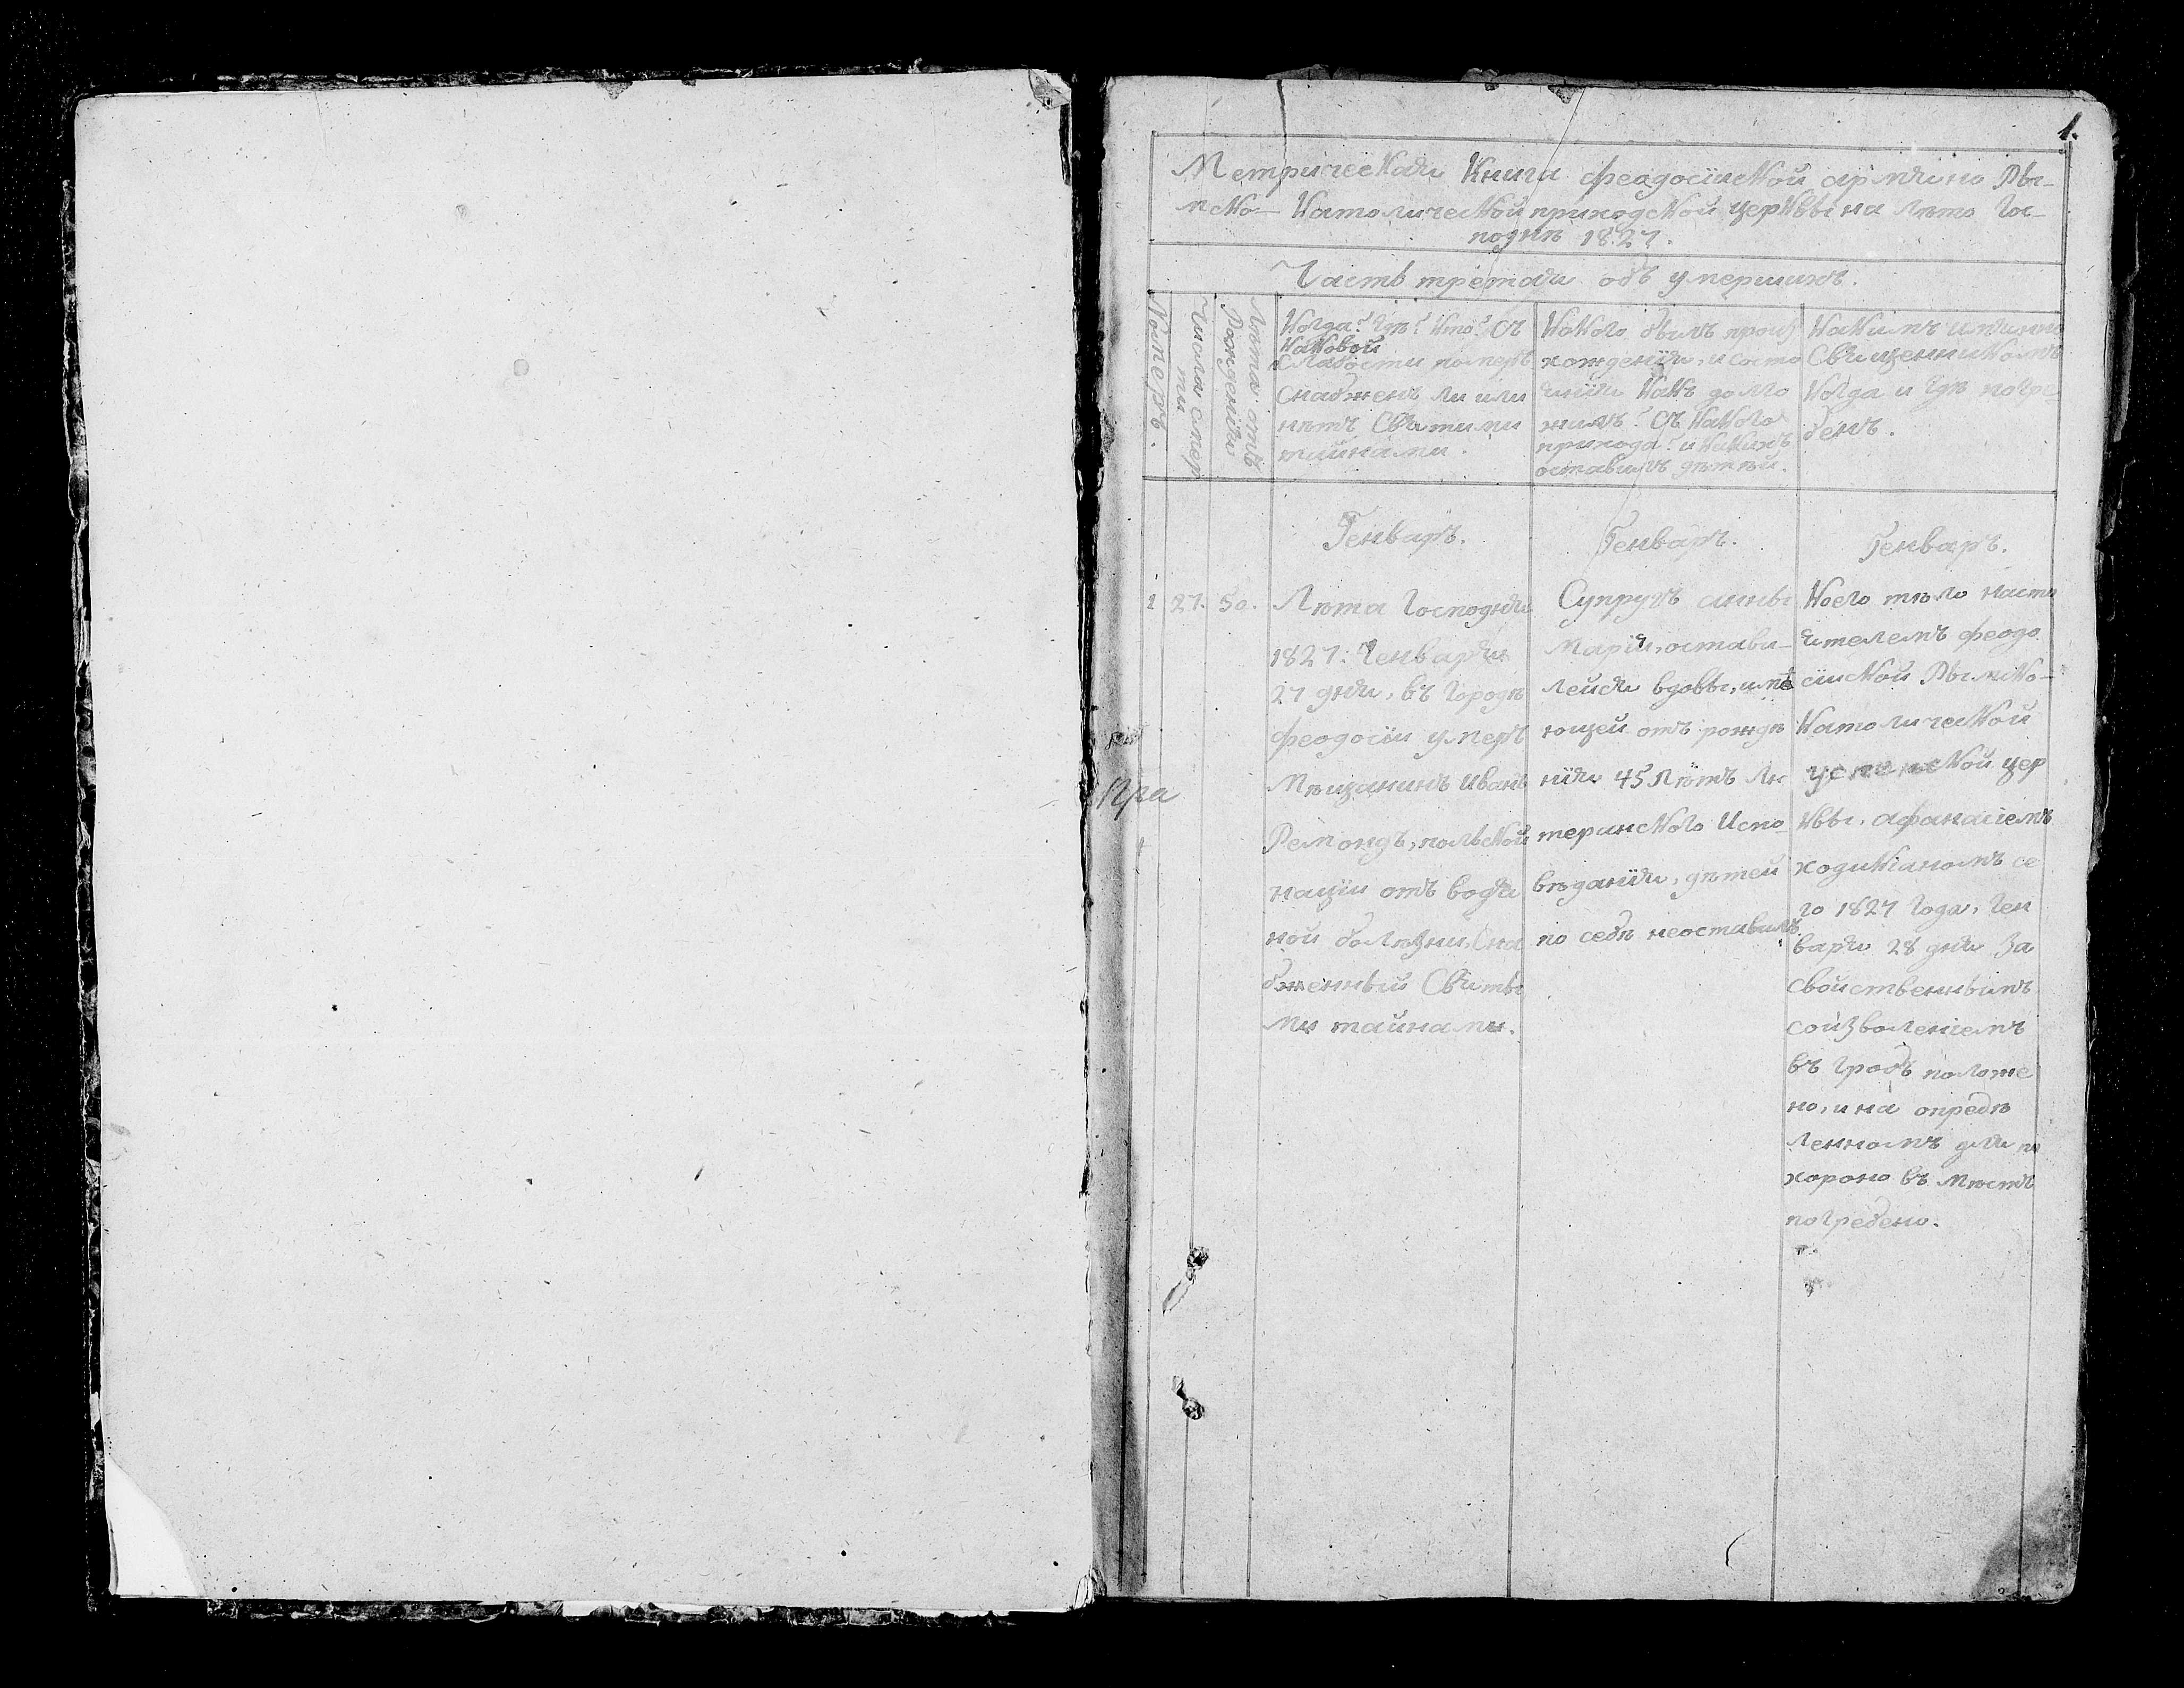 1.
Метрическая Книга феодосіиской армяно Ры-
мско- Католической приходской церквы на лѣто Гос-
поднѣ 1827.
Часть третая объ умершихъ.
Номеръ.
Число смер
ти
Лѣта отъ
Рождениіи
Когда? Гдѣ? Кто? Съ
каковой
слабости померъ
снабженъ ли или
нѣтъ Святими
тайнами.
Какого былъ произ
хожденія, и состо
янія какъ долго
жилъ? Съ какого
прихода? и какихъ
оставилъ дѣтей.
Какимъ имянно
Священникомъ
Когда и Гдѣ погре
бенъ.
Генваръ.
Генваръ.
Генваръ.
1
27.
50.
Лѣта Господня
1827: Генваря
27 дня, въ Городѣ
феодосіи умеръ
Мѣщанинъ Иванъ
Ремондъ, польской
націи отъ водя
ной болѣзни, Сна
бженный Святы
ми тайнами.
Супругъ анны
Маріи, остави-
лейся вдовы, имѣ
ющей отъ рожде
нія 45 Лѣтъ Лю
теринского Испо
вѣданія, дѣтей
по себѣ неоставилъ
Коего тѣло насто
ятелемъ феодо
сіиской Рымско-
Католической
успенской цер
квы, афанасіемъ
ходикіаномъ се
го 1827 Года, Ген
варя 28 дня За
свойственнымъ
соизволеніемъ
въ гробъ положе
но, и на опредѣ
ленномъ для по
хороно въ мѣстѣ
погребено.
Пра